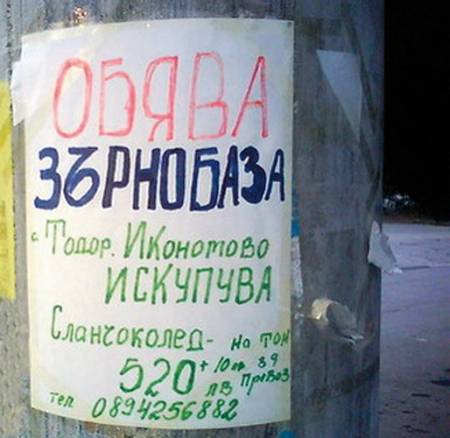 ОБЯВА
ЗЪРНОБАЗА
с. Тодор. Иконотово
ИСКУПУВА
Сланчоколед - на тон
520 + 10лв за
лв превоз
тел 0894256882